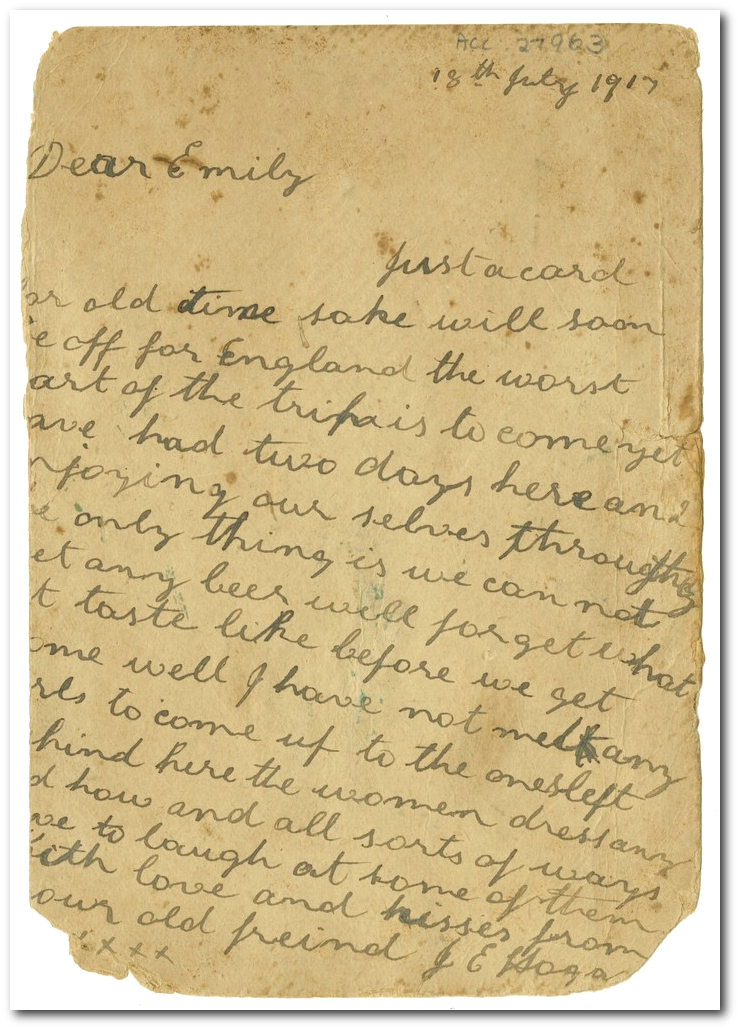 Acc. 27963
18th July 1917
Dear Emily
Just a card
or old time sake will soon
e off for England the worst
art of the trip is to come yet
ave had two days here and
njoying our selves through
e only thing is we can not
et anny beer will forget what
t taste like before we get
ome well I have not met any
rls to come up to the ones left
hind here the women dress any
d how and all sorts of ways
ve to laugh at some of them
ith love and kisses from
our old freind J E Hoga
xxxx